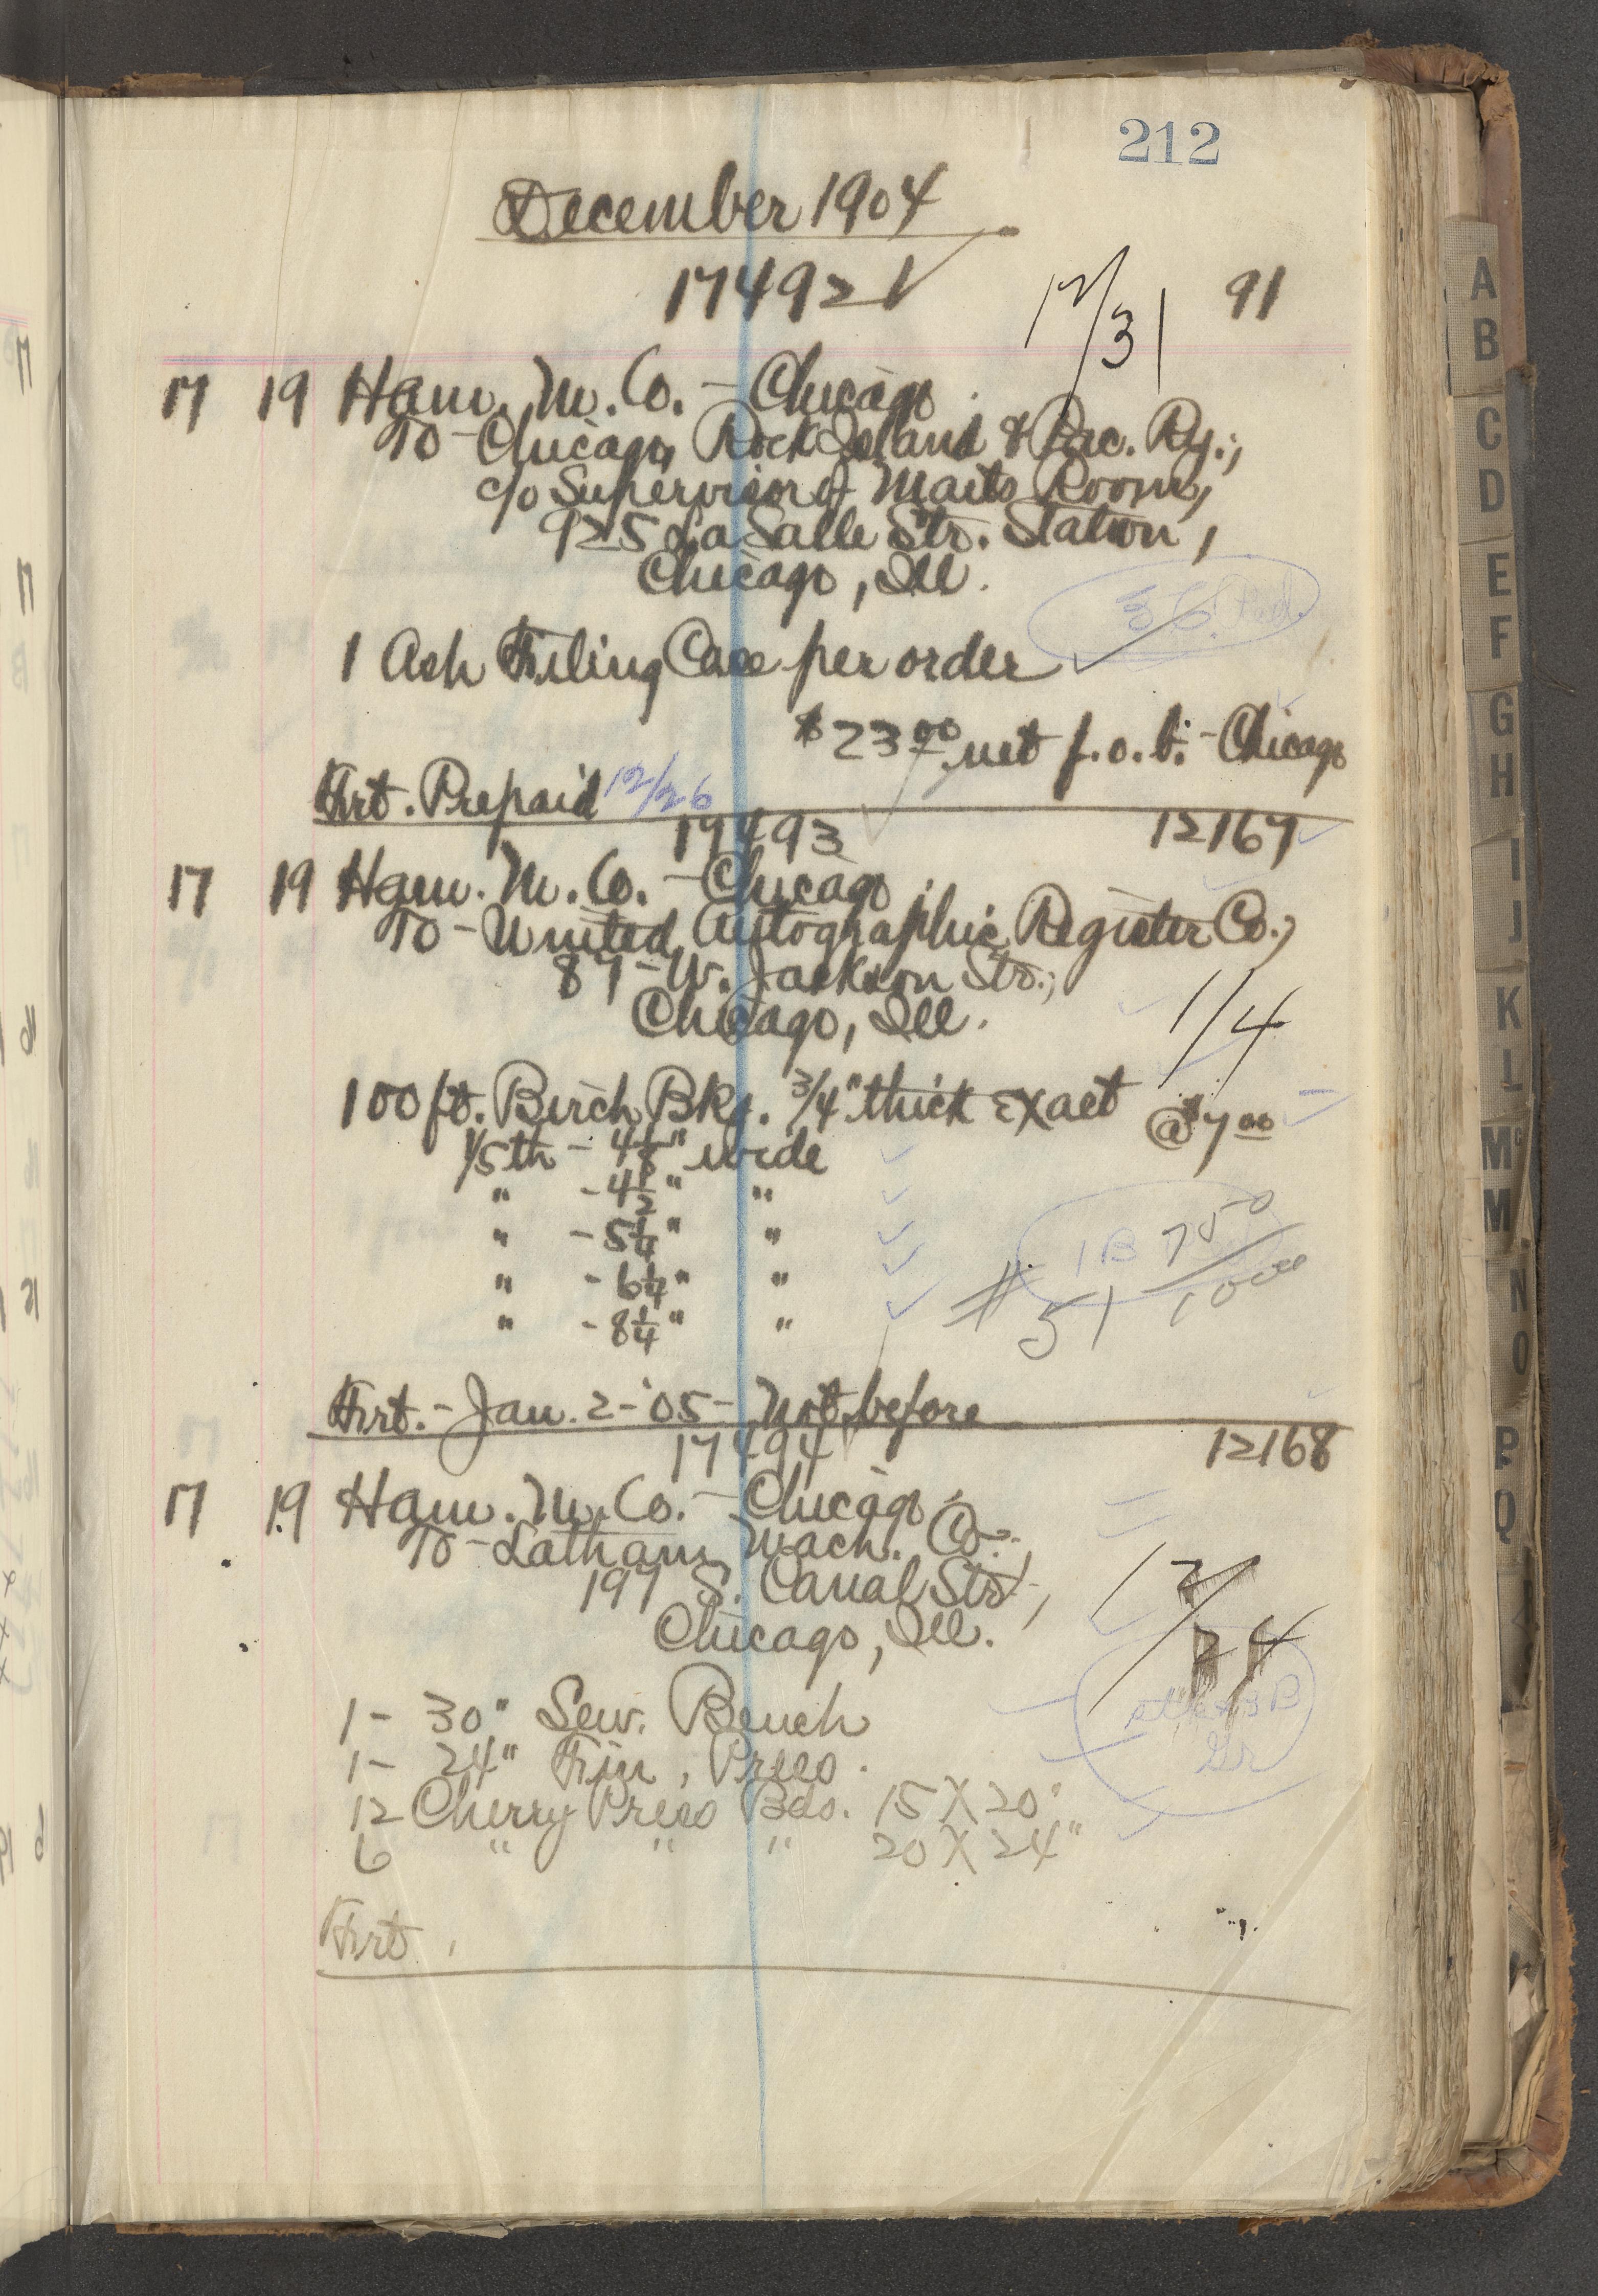 212
December 1904
17492 ✓ 12/31 91
17 19 Ham. M. Co. - Chicago
To - Chicago, Rock Island & Pac. Ry.,
c/o Supervisor of Mails Room,
925 La Salle Str. Station,
Chicago, Ill.
1 Ash Filing Case per order
$23.00 net f.o.b. - Chicago
Frt. Prepaid 12/26
17493 12167
17 19 Ham. M. Co. - Chicago
To - United Autographic Register Co.,
87 - W. Jackson Str.,
Chicago, Ill.
1/4
100 ft. Birch Bkg. 3/4" thick exact @ $7.00
1/5th - 4 1/8" wide
" - 4 1/2" "
" - 5 1/4" "
" - 6 1/4" "
" - 8 1/4" "
1B 750
# 51 1000
Frt. - Jan. 2 - '05 - Not before
17494 12168
17 19 Ham. M. Co. - Chicago
To - Latham Mach. Co.
197 S. Canal Str.,
Chicago, Ill.
12/24
1 - 30" Sew. Bench
1 - 24" Fin. Press.
12 Cherry Press Bds. 15 X 20"
6 " " " 20 X 24"
Frt.
A
B
C
D
E
F
G
H
I
J
K
L
Mc
M
N
O
P
Q